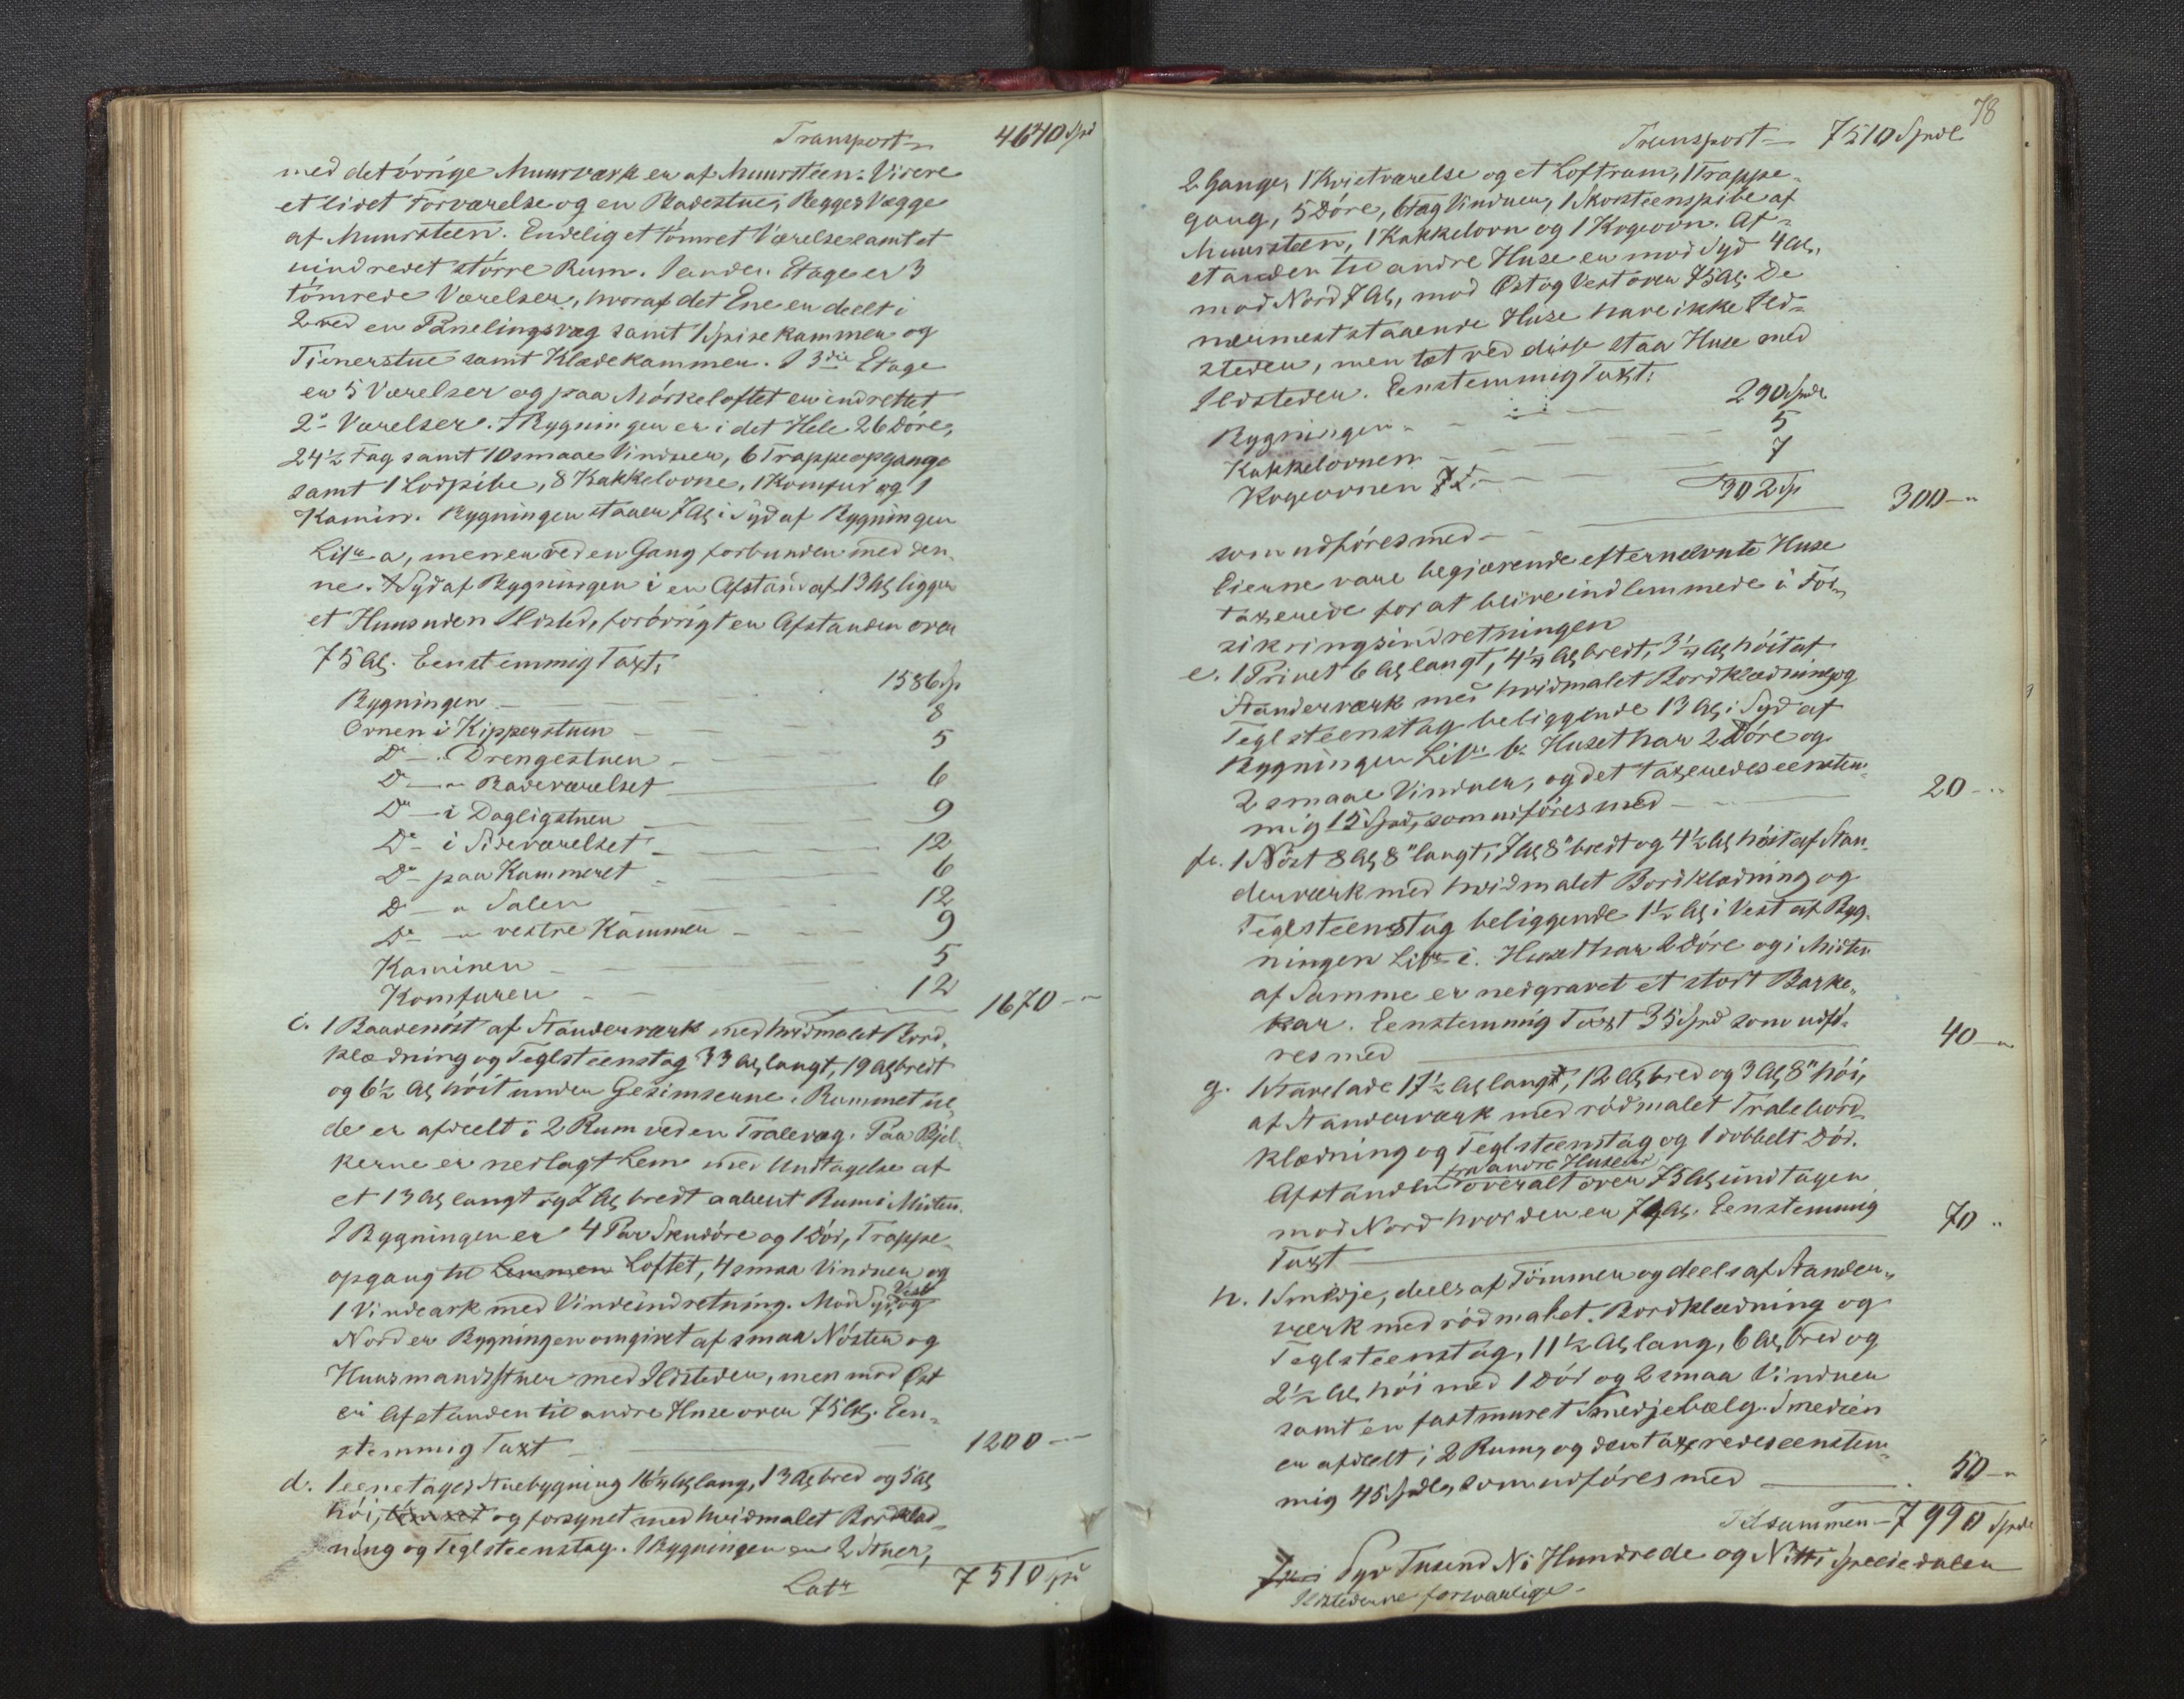 Transport 4640 Spd
med det övrige Muurværk er af Muursteen. Videre
et lidet Forværelse og en Badestue, Begges Vægge
af Muursteen. Endelig et tömret Værelse samt et
uindredet större Rum. I anden Etage er 3
tömrede Værelser, hvoraf det Ene er deelt i
2 ved en Panelingsvæg samt 1 Spisekammer og
Tienerstue samt Klædekammer. I 3die Etage
er 5 Værelser og paa Mörkeloftet er indrettet
2 Værelser. I Bygningen er i det Hele 26 Döre,
24½ Fag samt 10 smaae Vinduer, 6 Trappeopgange
samt 1 Lodpibe, 8 Kakkelovne, 1 Komfur og 1
Kamin. Bygningen staaer 7 Al. i Syd af Bygningen
Litr. a, men er ved en Gang forbunden med den-
ne. I Syd af Bygningen i en Afstand af 13 Al. ligger
et Huus uden Ildsted, forövrigt er Afstanden over
75 Al. Eenstemmig Taxt:
Bygningen 1586 Sp
Ovnen i Kipperstuen 8
Do - Drengestuen 5
Do - " Badeværelset 6
Do - i Dagligstuen 9
Do - i Sideværelset 12
Do - paa Kammeret 6
Do - " Salen 12
Do - " vestre Kammer 9
Kaminen 5
Komfuren 12 1670 - "
c. 1 Baadenöst af Standerværk med hvidmalet Bord-
klædning og Teglsteenstag 33 Al. langt, 19 Al. bredt
og 6½ Al. höit under Gesimserne. Rummet ne-
de er afdeelt i 2 Rum ved en Traleværg. Paa Bjel-
kerne er nedlagt Lem med Undtagelse af
et 13 Al. langt og 7 Al. bredt aabent Rum i Midten.
I Bygningen er 4 Par Skudöre og 1 Dör, Trappe-
opgang til Lemmen Loftet, 4 smaa Vinduer og
1 Vindeark med Vindeindretning. Mod Syd, Vest og
Nord er Bygningen omgivet af smaa Nöster og
Huusmandsstuer med Ildsteder, men mod Öst
er Afstanden til andre Huse over 75 Al. Een-
stemmig Taxt 1200 - "
d. 1 eenetages Stuebygning 16½ Al. lang, 13 Al. bred og 5 Al.
höi, tömret og forsynet med hvidmalet Bordklæd-
ning og Teglsteenstag. I Bygningen er 2 Stuer,
Latr 7510 Spd
78
Transport 7510 Spdl
2 Gange, 1 Kvistværelse og et Loftrum, 1 Trappe-
gang, 5 Döre, 6 Fag Vinduer, 1 Skorsteenspibe af
Muursteen, 1 Kakkelovn og 1 Kogeovn. Af-
standen til andre Huse er mod Syd 4 Al.,
mod Nord 7 Al., mod Öst og Vest over 75 Al. De
nærmest staaende Huse have ikke Ild-
steder, men tæt ved disse staa Huse med
Ildsteder. Eenstemmig Taxt:
Bygningen 290 Spdl.
Kakkelovnen 5
Kogeovnen 7
302 Sp
som udföres med 300 - "
Eierne vare begjærende efternævnte Huse
taxerede for at blive indlemmede i For-
sikringsindretningen
e. 1 Privet 6 Al. langt, 4½ Al. bredt, 3½ Al. höit af
Standerværk med hvidmalet Bordklædning og
Teglsteenstag beliggende 13 Al. i Syd af
Bygningen Litr. b. Huset har 2 Döre og
2 smaae Vinduer, og det taxeredes eenstem-
mig 15 Spd, som udföres med 20 - "
f. 1 Nöst 8 Al. 8" langt, 7 Al. 8" bredt og 4½ Al. höit af Stan-
derværk med hvidmalet Bordklædning og
Teglsteenstag beliggende 1½ Al. i Vest af Byg-
ningen Litr. c. Huset har 2 Döre og i Midten
af Samme er nedgravet et stort Barke-
kar. Eenstemmig Taxt 35 Spd som udfö-
res med 40 - "
g. 1 Tørvlade 17½ Al. lang, 12 Al. bred og 3 Al. 8" höi,
af Standerværk med rödmalet Tralebord-
klædning og Teglsteenstag og 1 dobbelt Dör.
Afstanden fra andre Huse er overalt over 75 Al. undtagen
mod Nord hvor den er 7 Al. Eenstemmig
Taxt 70 "
h. 1 Smedje, deels af Tömmer og deels af Stander-
værk med rödmalet Bordklædning og
Teglsteenstag, 11½ Al. lang, 6 Al. bred og
2½ Al. höi med 1 Dör og 2 smaa Vinduer
samt en fastmuret Smedjebælg. Smedien
er afdeelt i 2 Rum, og den taxeredes eenstem-
mig 45 Spdl, som udföres med 50 - "
Tilsammen 7990 Spdl
Syv Tusend Ni Hundrede og Nitti Speciedaler
Ildstederne forsvarlige.